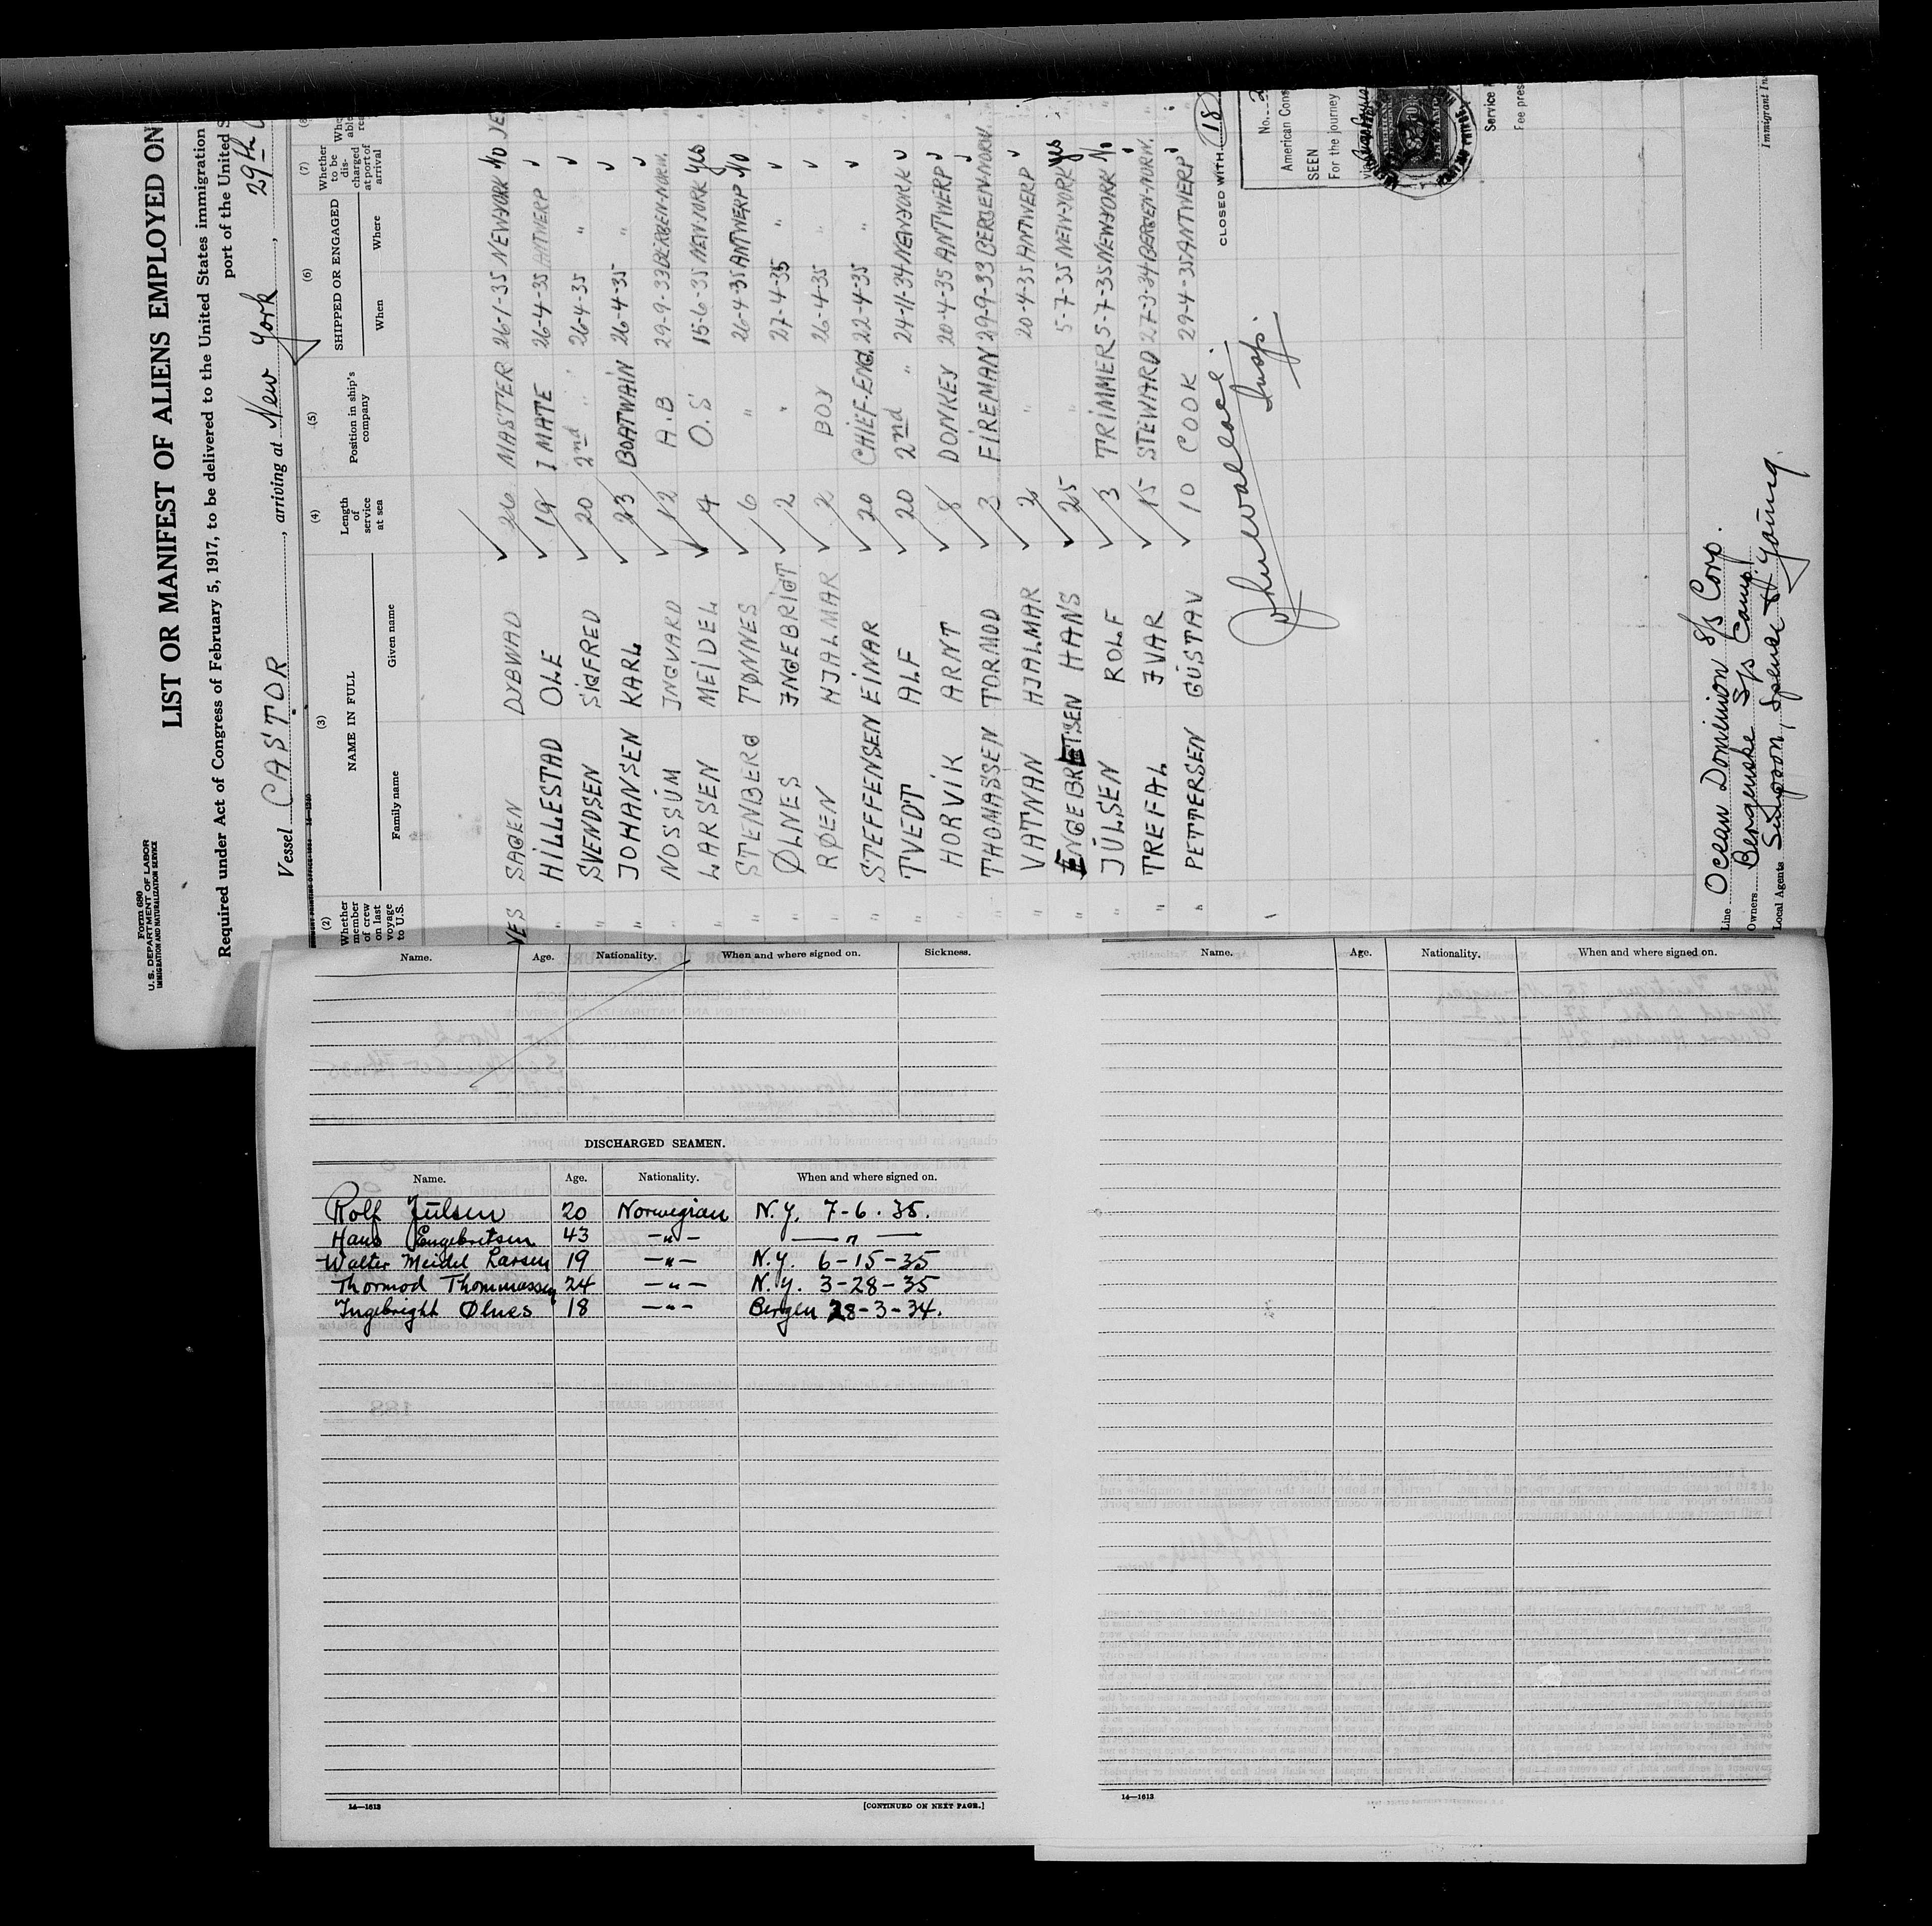 Form 680
U.S. DEPARTMENT OF LABOR
IMMIGRATION AND NATURALIZATION SERVICE
LIST OR MANIFEST OF ALIENS EMPLOYED ON
Required under Act of Congress of February 5, 1917, to be delivered to the United States immigration
port of the United S
Vessel CASTOR, arriving at New York, 29th
(2) (3) (4) (5) (6) (7)
Whether member of crew on last voyage to U.S. NAME IN FULL Length of service at sea Position in ship's company SHIPPED OR ENGAGED Whether to be discharged at port of arrival
Family name Given name When Where
YES SAGEN DYBWAD 26 MASTER 26-1-35 NEW-YORK NO
" HILLESTAD OLE 19 I MATE 26-4-35 ANTWERP
" SVENDSEN SIGFRED 20 2nd " 26-4-35 "
" JOHANSEN KARL 23 BOATWAIN 26-4-35 "
" NOSSÚM INGVARD 12 A.B 29-9-33 BERGEN-NORW.
" LARSEN MEIDEL 4 O.S 15-6-35 NEW-YORK Yes
" STENBERG TØNNES 6 " 26-4-35 ANTWERP No
" ØLNES INGEBRIGT 2 " 27-4-35 "
" RØEN HJALMAR 2 BOY 26-4-35 "
" STEFFENSEN EINAR 20 CHIEF-ENG. 22-4-35 "
" TVEDT ALF 20 2nd " 24-11-34 NEW-YORK
" HORVIK ARNT 8 DONKEY 20-4-35 ANTWERP
" THOMASSEN TORMOD 3 FIREMAN 29-9-33 BERGEN-NORW.
" VATNAN HJALMAR 2 " 20-4-35 ANTWERP
" ENGEBRETSEN HANS 25 " 5-7-35 NEW-YORK Yes
JÚLSEN ROLF 3 TRIMMER 5-7-35 NEW-YORK No
" TREFAL IVAR 15 STEWARD 27-3-34 BERGEN-NORW.
" PETTERSEN GÚSTAV 10 COOK 29-4-35 ANTWERP
CLOSED WITH 18
John Wallace
Insp.
No. 2
American Cons
SEEN
For the journey
Service
Fee pres
Immigrant In
Line Ocean Dominion S/S Corp.
Owners Bergenske S/S Comp!
Local Agents Simpson, Spence & Young
Name. Age. Nationality. When and where signed on. Sickness.
DISCHARGED SEAMEN.
Name. Age. Nationality. When and where signed on.
Rolf Júlsen 20 Norwegian N.Y. 7-6-35.
Hans Engebretsen 43 —"— —"—
Walter Meidel Larsen 19 —"— N.Y. 6-15-35
Thormod Thommassen 24 —"— N.Y. 3-28-35
Ingebright Ølnes 18 —"— Bergen 28-3-34.
14—1613 [CONTINUED ON NEXT PAGE.]
Name. Age. Nationality. When and where signed on.
14—1613